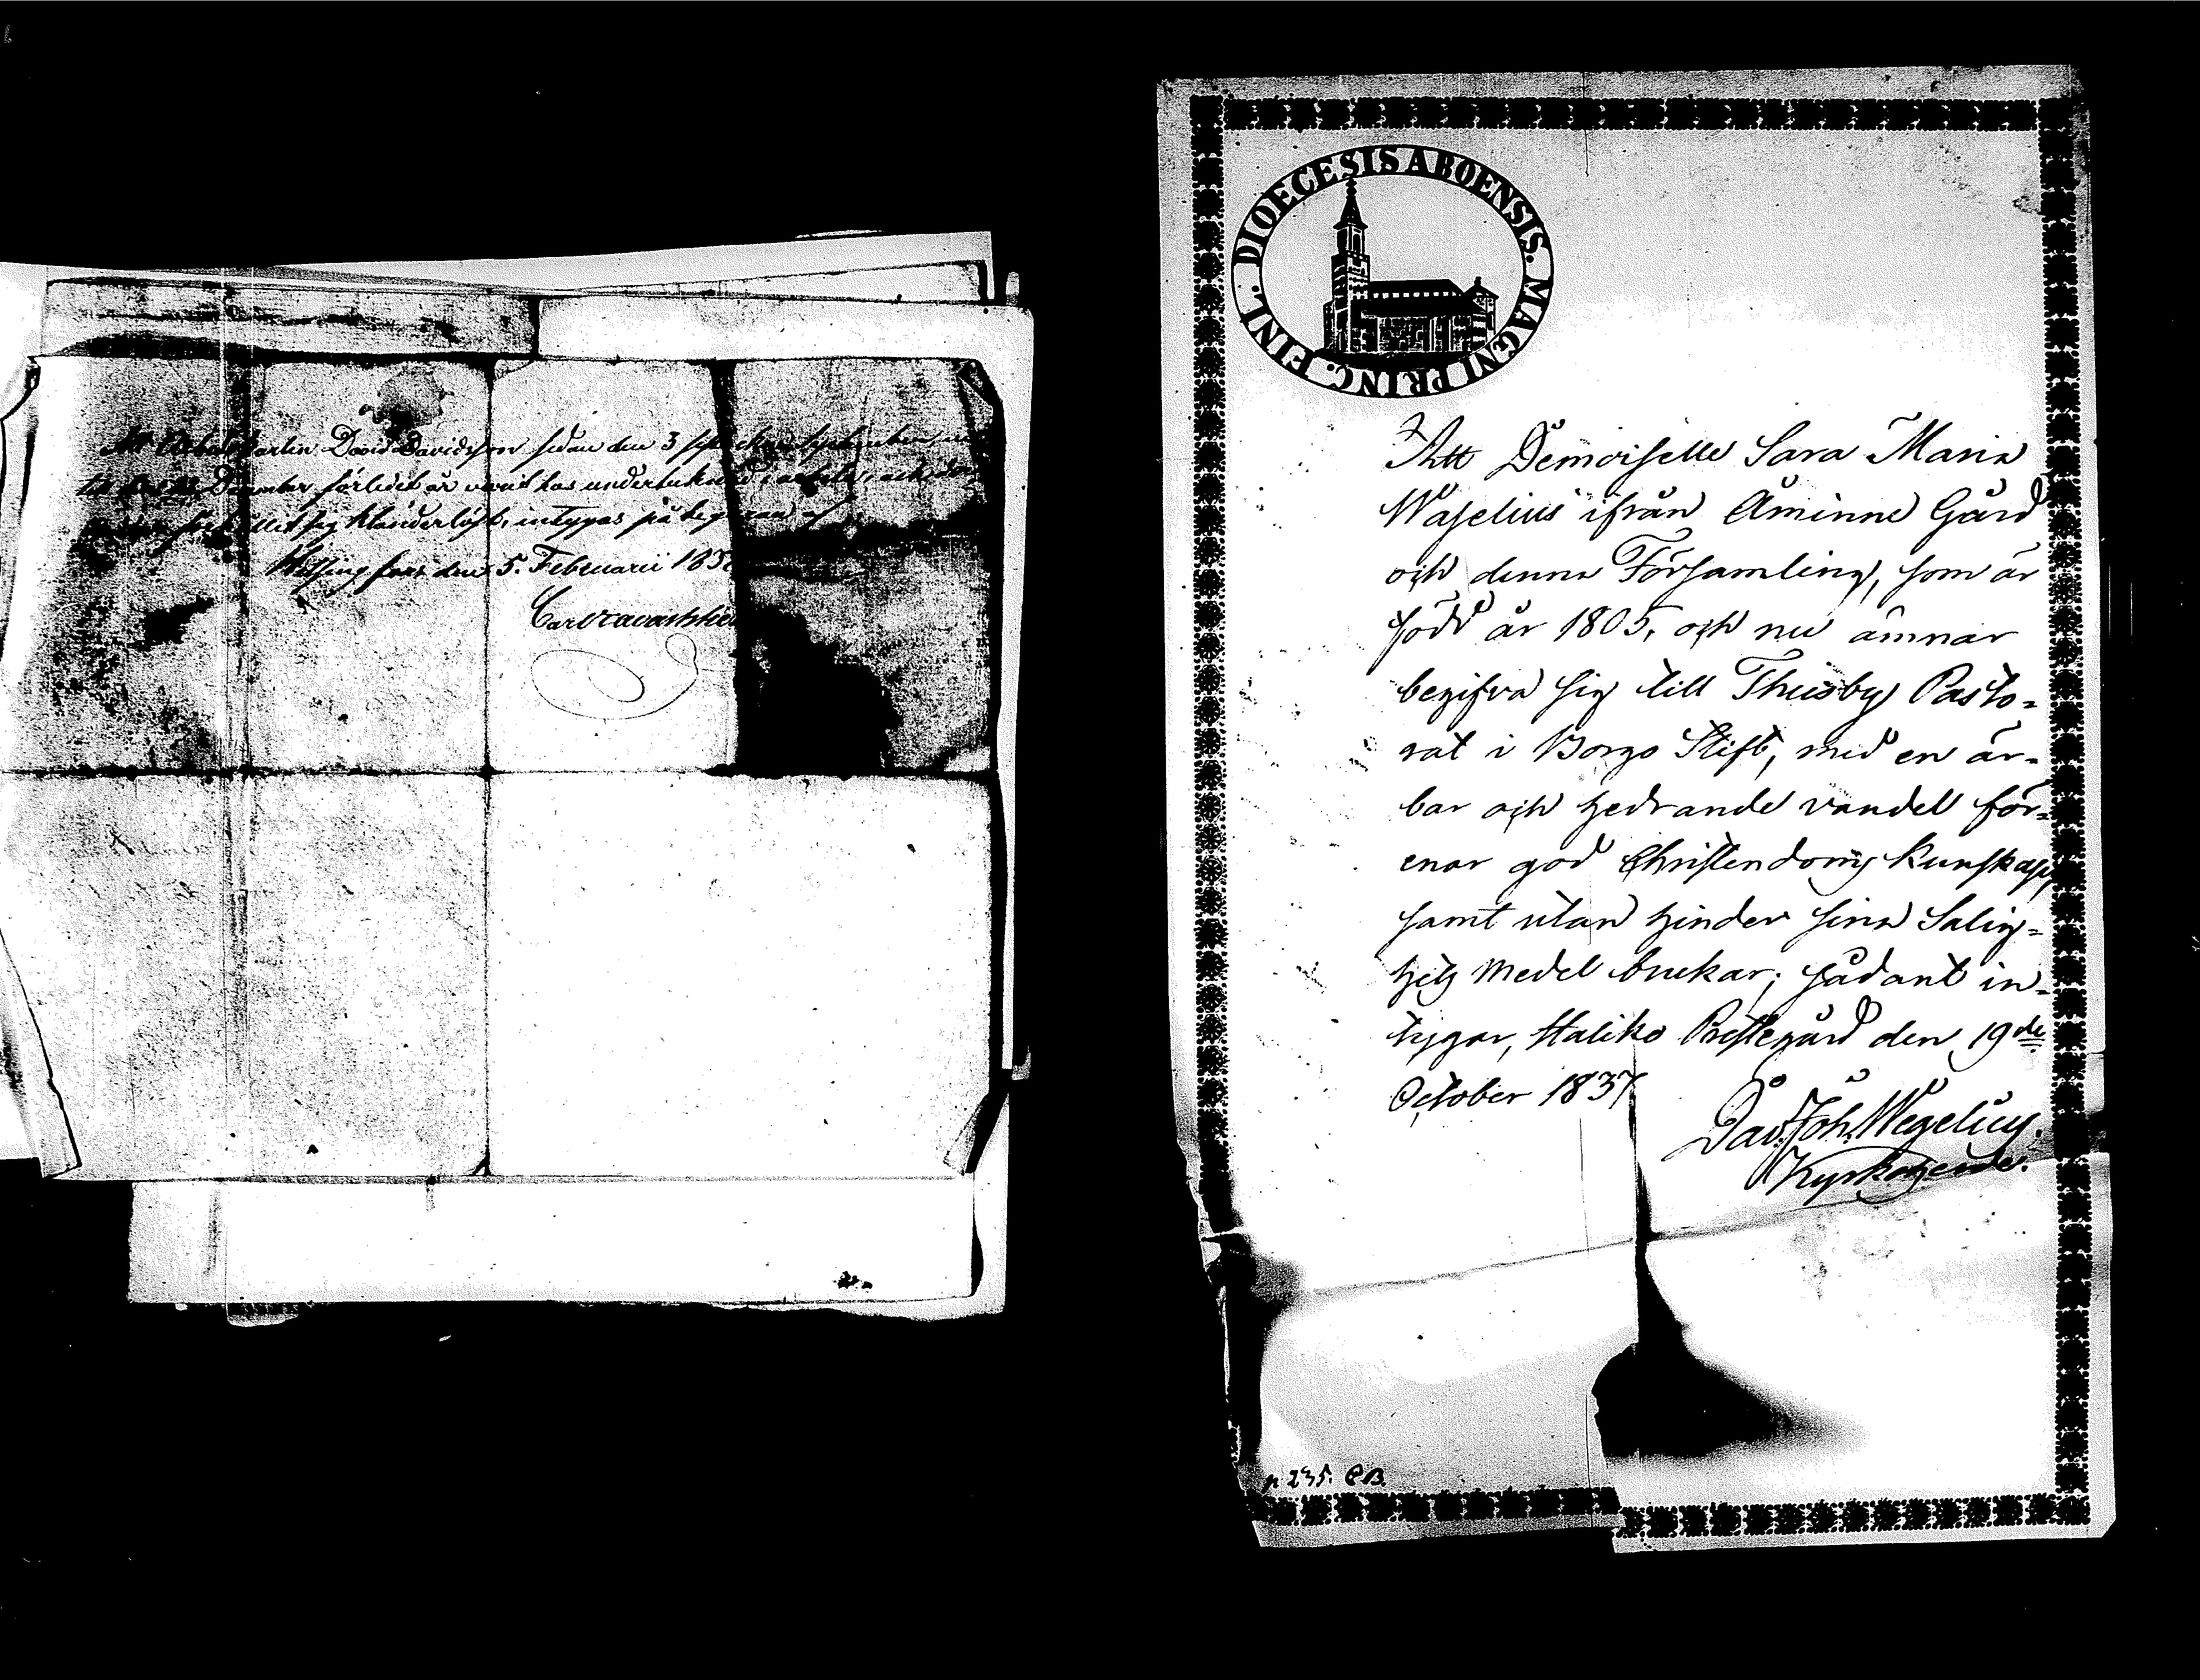 Att Arbetskarlen David Davidsson sedan den 3 September
till December förledet år varit hos undertecknad i arbete, och
förhållit sig klanderlöst, intygas på begäran af
Helsingfors den 5. Februarii 183
Carl
DIOECESIS ABOENSIS. MAGNI PRINC. FINL.
Att Demoiselle Sara Maria
Waselius ifrån Åminne Gård
och denna Församling, som är
född år 1805, och nu ämnar
begifva sig till Thusby Pasto-
rat i Borgo Stift, med en är-
bar och hedrande vandel för-
enar god Christendoms Kunskap,
samt utan hinder sina Salig-
hets Medel brukar; sådant in-
tygar, Haliko Prestegård den 19de
October 1837
Dav. Joh. Wegelius.
Kyrkoherde.
p 235. CB